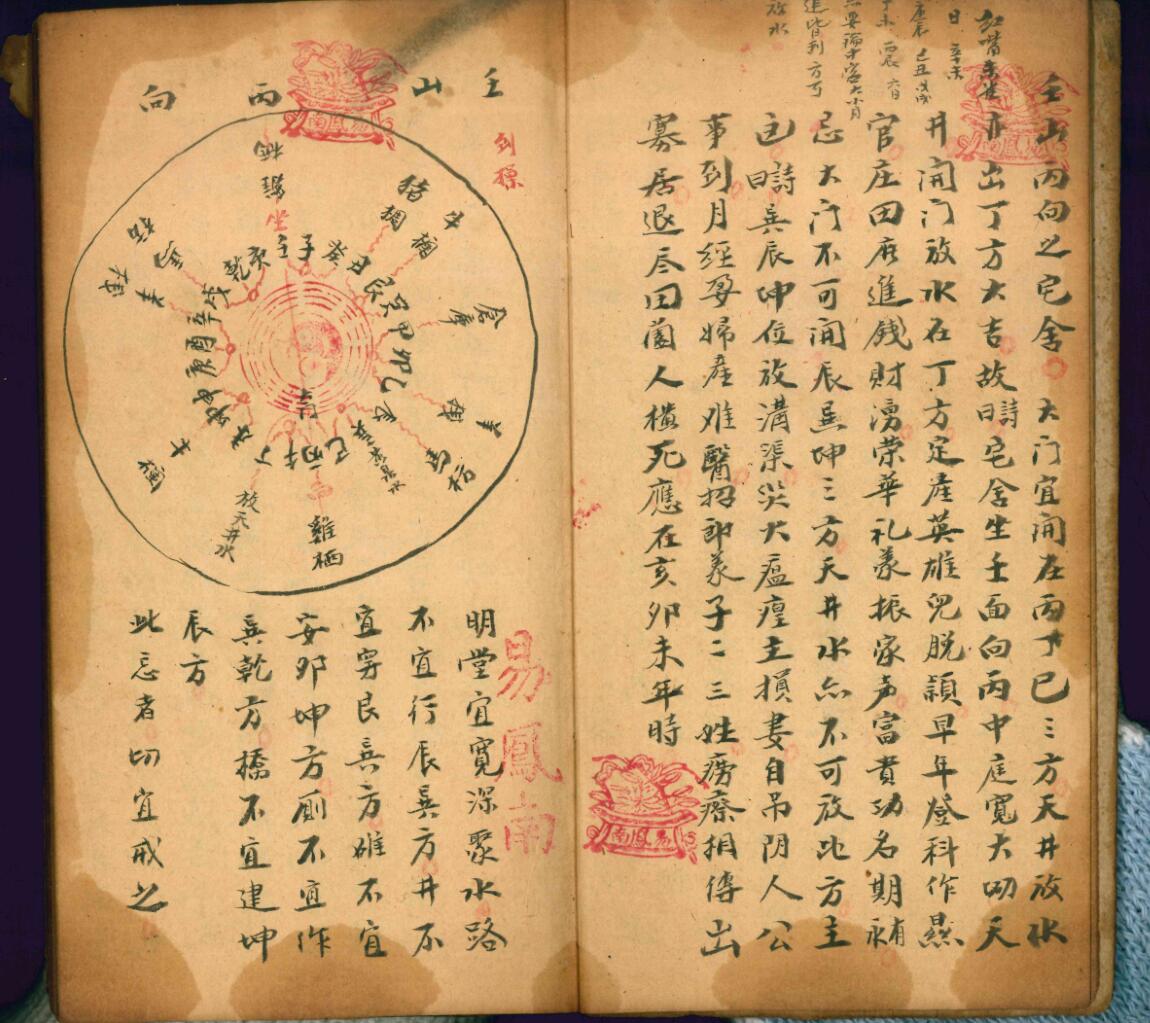 壬山丙向之宅舍 大门宜開在丙丁巳三方天井放水
亦出丁方大吉故詩曰宅舍坐壬面向丙中庭寬大切天
井開门放水在丁方定產英雄兒脱穎早年登科作縣
官庄田庶進錢財湧荣華礼義振家声富貴功名期永有
忌大门不可開辰巽坤三方天井水亦不可放此方主
凶詩曰巽辰坤位放溝渠災大瘟瘟主損妻自吊阴人公
事到月經孕婦產难醫招郎義子二三姓癆瘵相傳出
寡居退尽田園人橫死應在亥卯未年時
壬山丙向
豬欄
牛欄
倉庫
羊棧
馬枋
雞栖
放天井水
牛欄
羊棧
馬枋
雞栖
坐壬子癸丑艮寅甲卯乙辰巽巳丙午丁未坤申庚酉辛戌乾亥
明堂宜寬深聚水路
不宜行辰巽方井不
宜穷艮巽方碓不宜
安卯坤方廁不宜作
巽乾方橋不宜建坤
辰方
此忌者切宜戒之
易鳳南